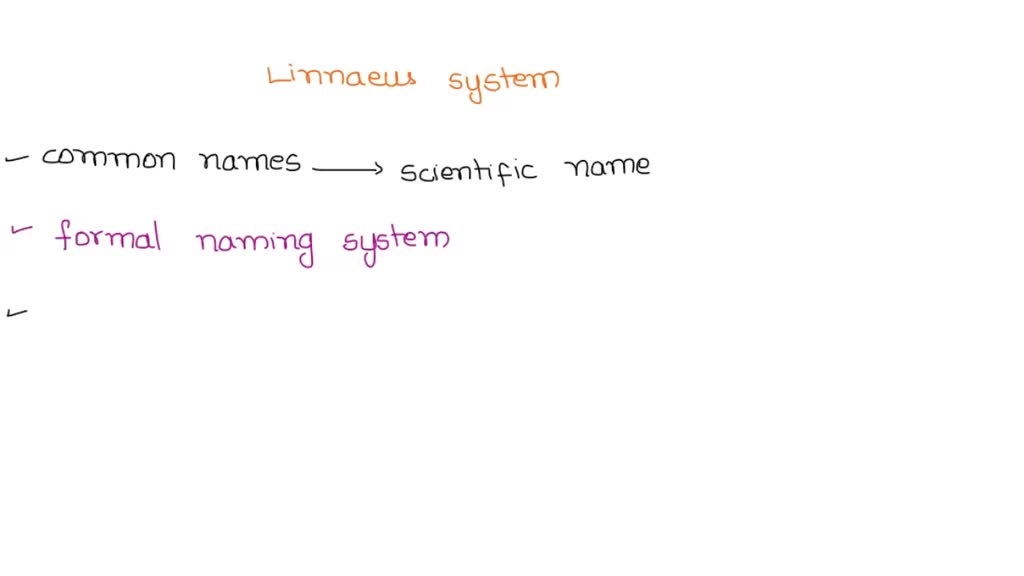 Linnaeus system
✓ common names → scientific name
✓ formal naming system
✓